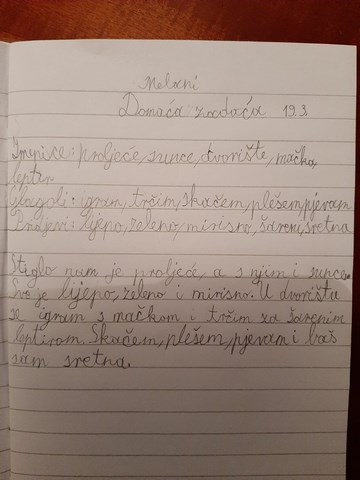 Melani
Domaća zadaća 19.3.
Imenice: proljeće, sunce, dvorište, mačka,
leptir
Glagoli: igram, trčim, skačem, plešem, pjevam
Pridjevi: lijepo, zeleno, mirisno, šareni, sretna
Stiglo nam je proljeće, a s njim i sunce.
Sve je lijepo, zeleno i mirisno. U dvorištu
se igram s mačkom i trčim za šarenim
leptirom. Skačem, plešem, pjevam i baš
sam sretna.